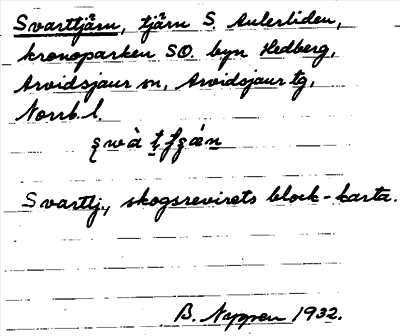 Svarttjärn, tjärn S. Aulerliden,
kronoparken SO. byn Hedberg,
Arvidsjaur sn, Arvidsjaur tg,
Norrb. l.
Svarttj., skogsrevirets block-karta.
B. Nappen 1932.